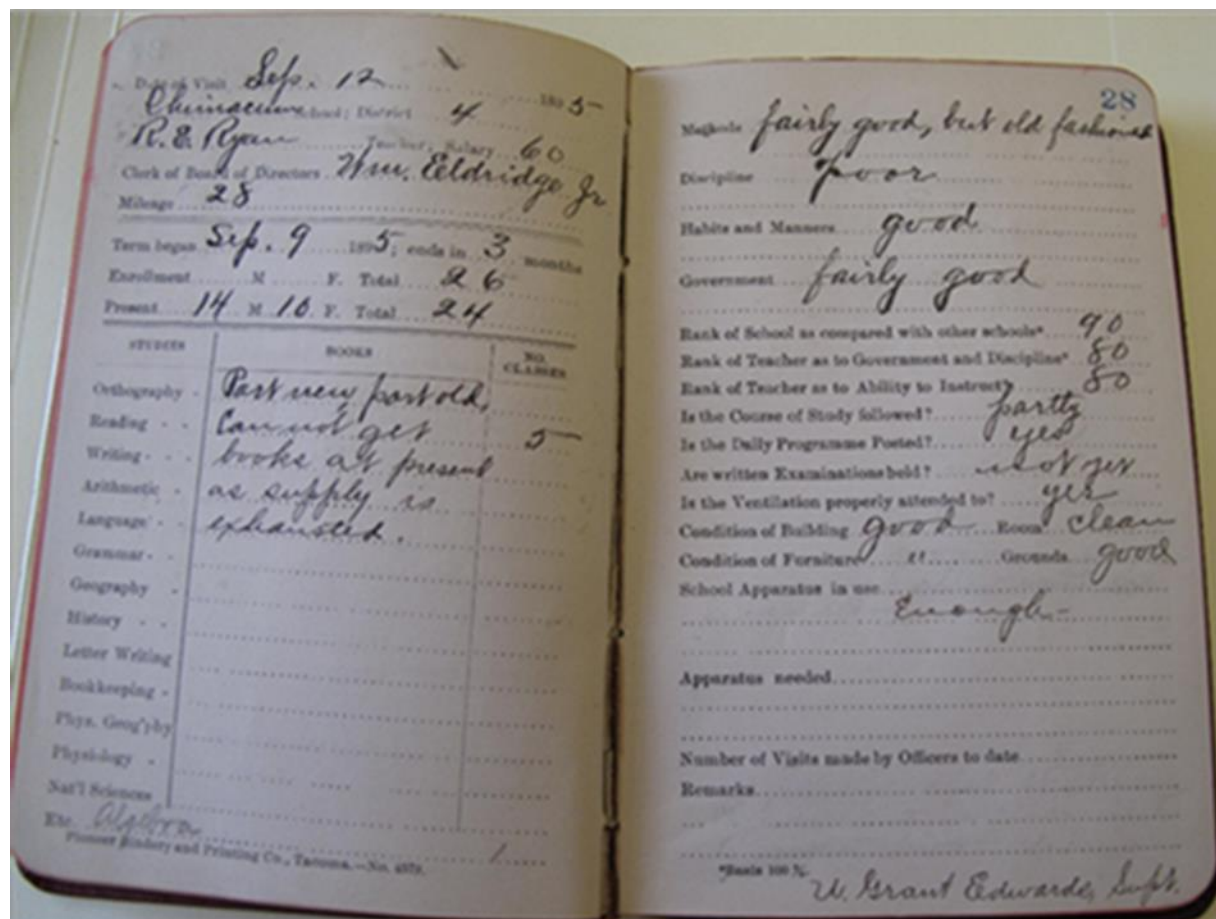 Date of Visit Sep. 12 1895
Chimacum School; District 4
R. E. Ryan Teacher; Salary 60
Clerk of Board of Directors Wm. Eldridge Jr
Mileage 28
Term began Sep. 9 1895; ends in 3 months
Enrollment M F. Total 26
Present 14 M 10 F. Total 24
STUDIES BOOKS NO. CLASSES
Orthography Part new part old,
Reading Can not get 5
Writing books at present
Arithmetic as supply is
Language exhausted.
Grammar
Geography
History
Letter Writing
Bookkeeping
Phys. Geog'phy
Physiology
Nat'l Sciences
Etc. Algebra 1
Pioneer Bindery and Printing Co., Tacoma.—No.
28
Methods fairly good, but old fashioned
Discipline Poor
Habits and Manners good
Government fairly good
Rank of School as compared with other schools* 90
Rank of Teacher as to Government and Discipline* 80
Rank of Teacher as to Ability to Instruct* 80
Is the Course of Study followed? partly
Is the Daily Programme Posted? yes
Are written Examinations held? not yet
Is the Ventilation properly attended to? yes
Condition of Building good Room clean
Condition of Furniture " Grounds good
School Apparatus in use
Enough-
Apparatus needed
Number of Visits made by Officers to date
Remarks
*Basis 100 %.
U. Grant Edwards, Supt.